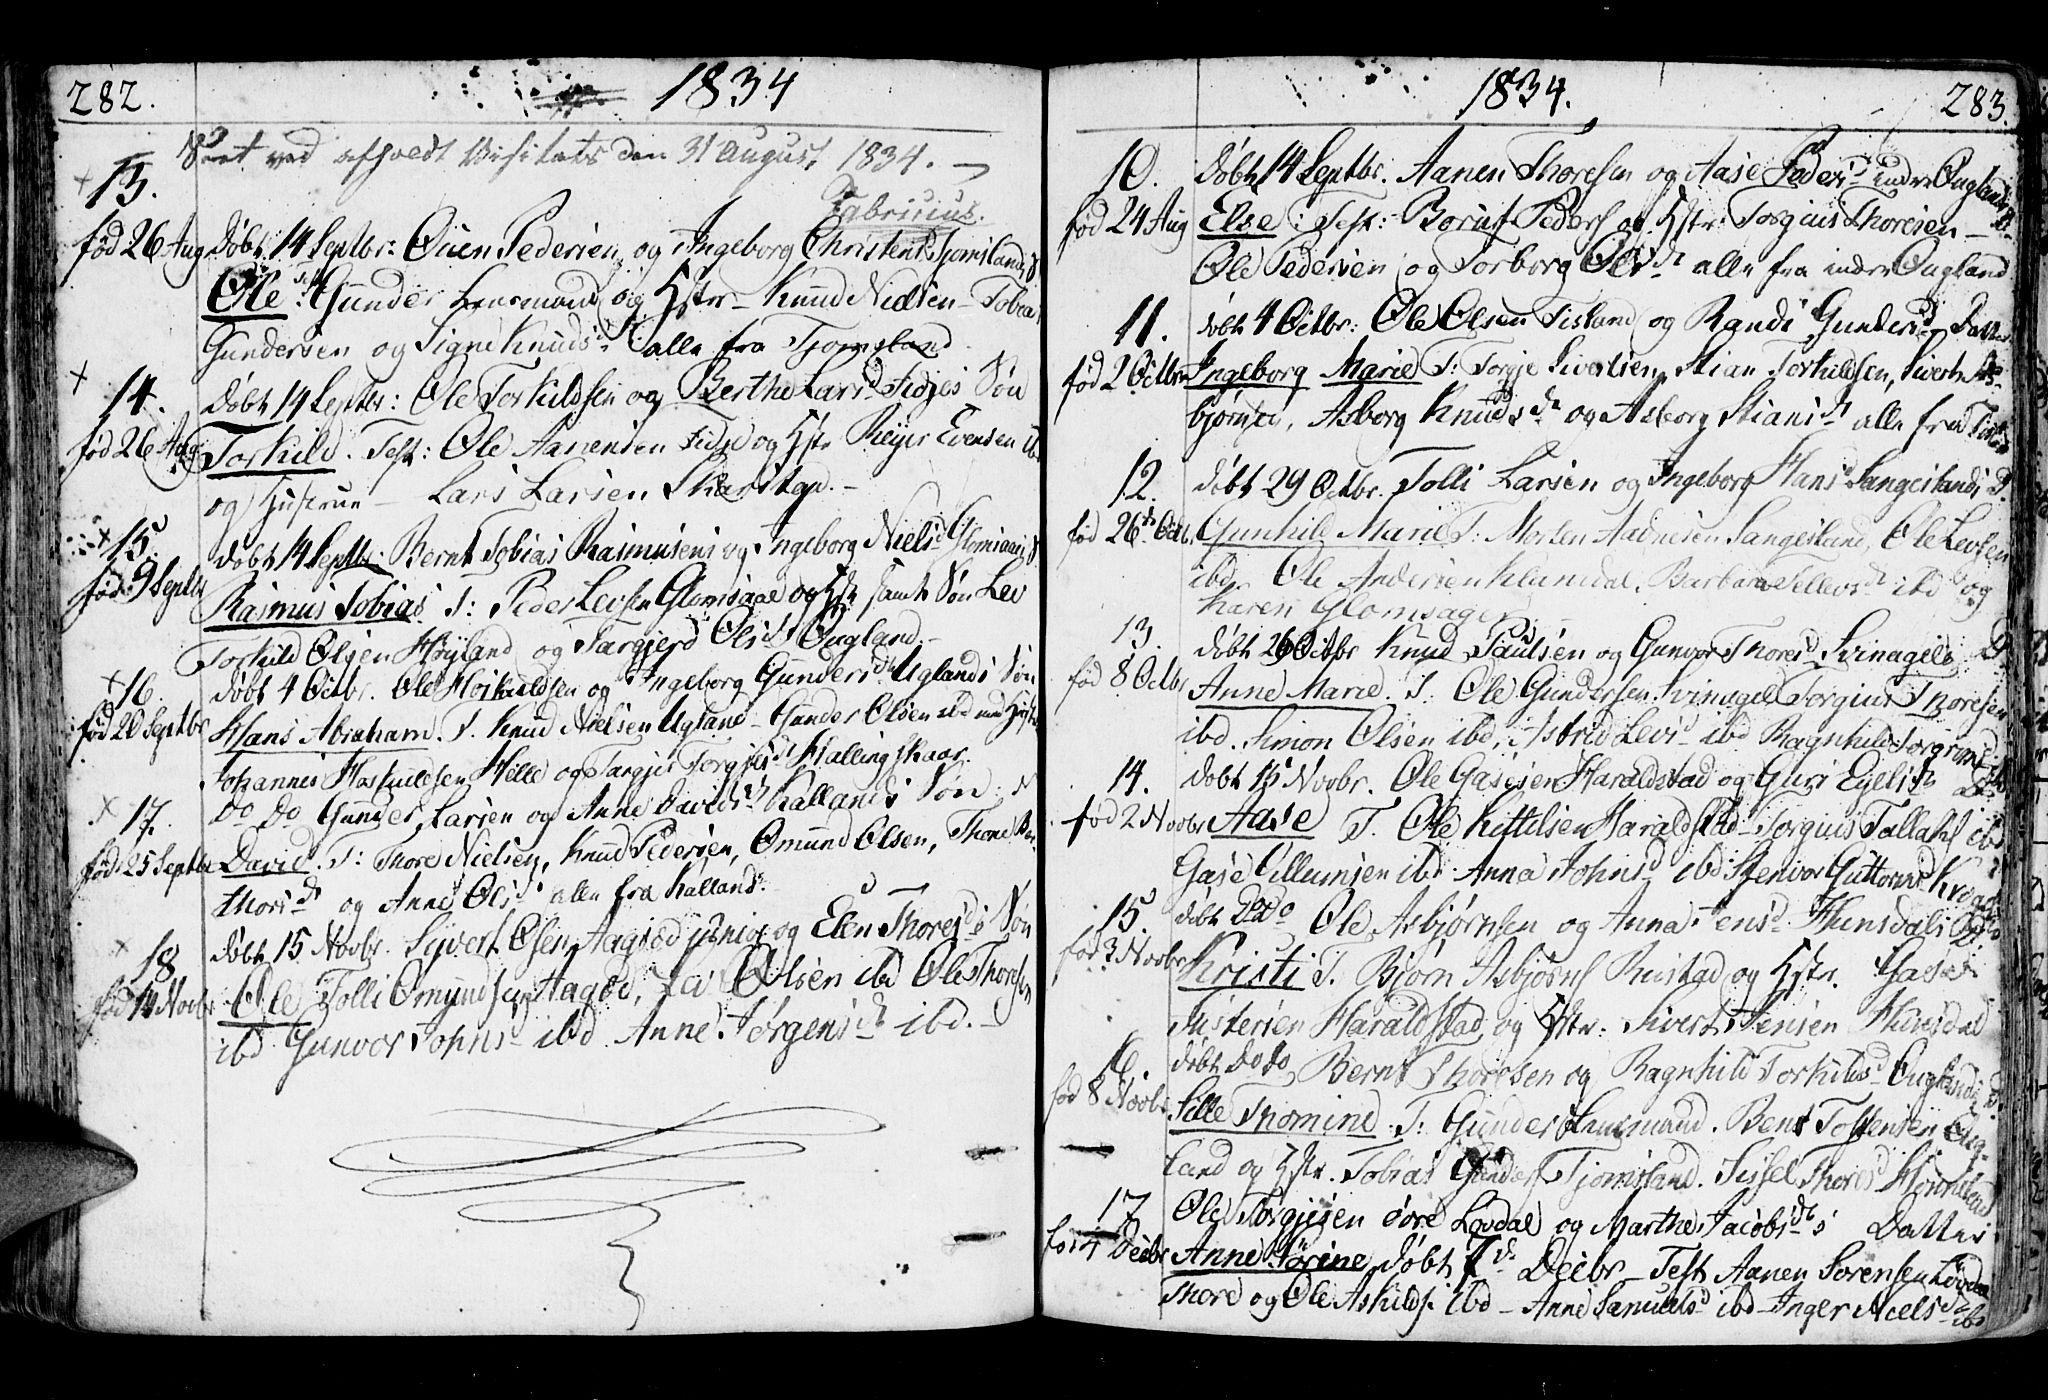 282.
1834
Seet ved afholdt Visitats den 31 August 1834. —
Fabricius.
13.
fød 26 Aug
Døbt 14 Septbr: Ouen Pedersen og Ingeborg Christensd. Tjomslands S
Ole: Gunder Lensmand og Hstr — Knud Nielsen — Tobias
Gundersen og Signe Knudsd. alle fra Tjomsland
14.
fød 26 Aug
døbt 14 Septbr: Ole Torkildsen og Berthe Larsd. Fidjes Søn
Torkild. Test: Ole Aanensen Fidje og Hstr Reijer Evensen ibd
og Hustrue — Lars Larsen
15.
fød 9 Septbr
døbt 14 Septbr: Bernt Tobias Rasmusens og Ingeborg Nielsd. Glomsaas S
Rasmus Tobias T: Peder Levsen Glomsaae og Hstr samt Søn Lev
Torkild Olsen Høyland og Targjerd Olsd. Ougland. —
16.
fød 20 Septbr
døbt 4 Octbr. Ole Hoskuldsen og Ingeborg Gundersd. Uglands Søn
Hans Abraham. T. Knud Nielsen Ugland — Gunder Olsen ibd med Hustr
Johannes Hoskuldsen Helle og Targjer Torgjusd. Hallingskaar.
17.
fød 25 Septbr
Do Do Gunder Larsen og Anne Davidsd. Kallands Søn
David T: Thore Nielsen, Knud Pedersen, Omund Olsen, Thone
thorsd. og Anne Olsd. alle fra Kalland.
18
fød 14 Novbr
døbt 15 Novbr. Syvert Osen Aagsod junior og Elen Thoresd.s Søn
Ole Tolli Omundsen Aagsod, Olsen ibd Ole Thoresen
ibd Gunvor Johnsd. ibd Anne Jørgensd. ibd. —
1834.
283.
10.
fød 24 Aug
døbt 14 Septbr. Aanen Thoresen og Aase Pedersd. indre Ouglands D.
Else: Test: Bornt Peders og Hstr: Torgius Thoresen —
Ole Pedersen og Torborg Olsd. alle fra indre Ougland
11.
fød 2 Octbr
døbt 4 Octbr: Ole Olsen Tisland og Randi Gundersd. Datter
Ingeborg Marie T: Torgje Sivertsen, Stian Torkildsen, Sivert As-
bjørnsen, Asborg Knudsd. og Asborg Stiansd. alle fra Tisland
12.
fød 26d. Octb.
døbt 29 Octbr. Tolli Larsen og Ingeborg Hansd. Sangeslands D.
Gunhild Marie T: Morten Aadnesen Sangesland, Ole Levsen
ibd, Ole Andersen Klumdal, Barbara Tellevsd. ibd og
Karen Glomsager —
13.
fød 8 Octbr
døbt 26 Octbr Knud Paulsen og Gunvor Thoresd. Svinagels D
Anne Marie. T. Ole Gundersen Svinagel Torgius Thoresen
ibd. Simon Olsen ibd, Astrid Levsd. ibd Ragnhild Torgrimsd.
14.
fød 2 Novbr
døbt 15 Novbr. Ole Gasesen Haraldstad og Guri Egelsd. D.
Aase T. Ole Kittilsen Haraldstad — Torgius Tallaks ibd
Gase Villumsen ibd Anna Johnsd. ibd Gunvor Guttormsd.
15.
fød 3 Novbr
døbt Dodo Ole Asbjørnsen og Anna Jensd. Hunsdals D.
Kristi T. Bjørn Asbjørns Rustad og Hstr. Gase
Tistersen Haraldstad og Hstr: Sivert Jensen Hunsdal
16.
fød 8 Novbr
døbt Dodo Bernt Thoresen og Ragnhild Torkildsd. Ouglands D.
Sille Thomine. T: Gunder Lensmand. Bent Tostensen Oug-
land og Hstr. Tobias Gunders Tjomsland. Sissel Thoresd.
17
fød 4 Decbr
Ole Torgjesen øvre Løvdal og Marthe Jacobsd.s Datter
Anne Torine døbt 7d. Decbr — Test Aanen Sorensen Løvdal
Thore og Ole Askilds. ibd — Anne Samuelsd. ibd — Inger Neelsd. ibd